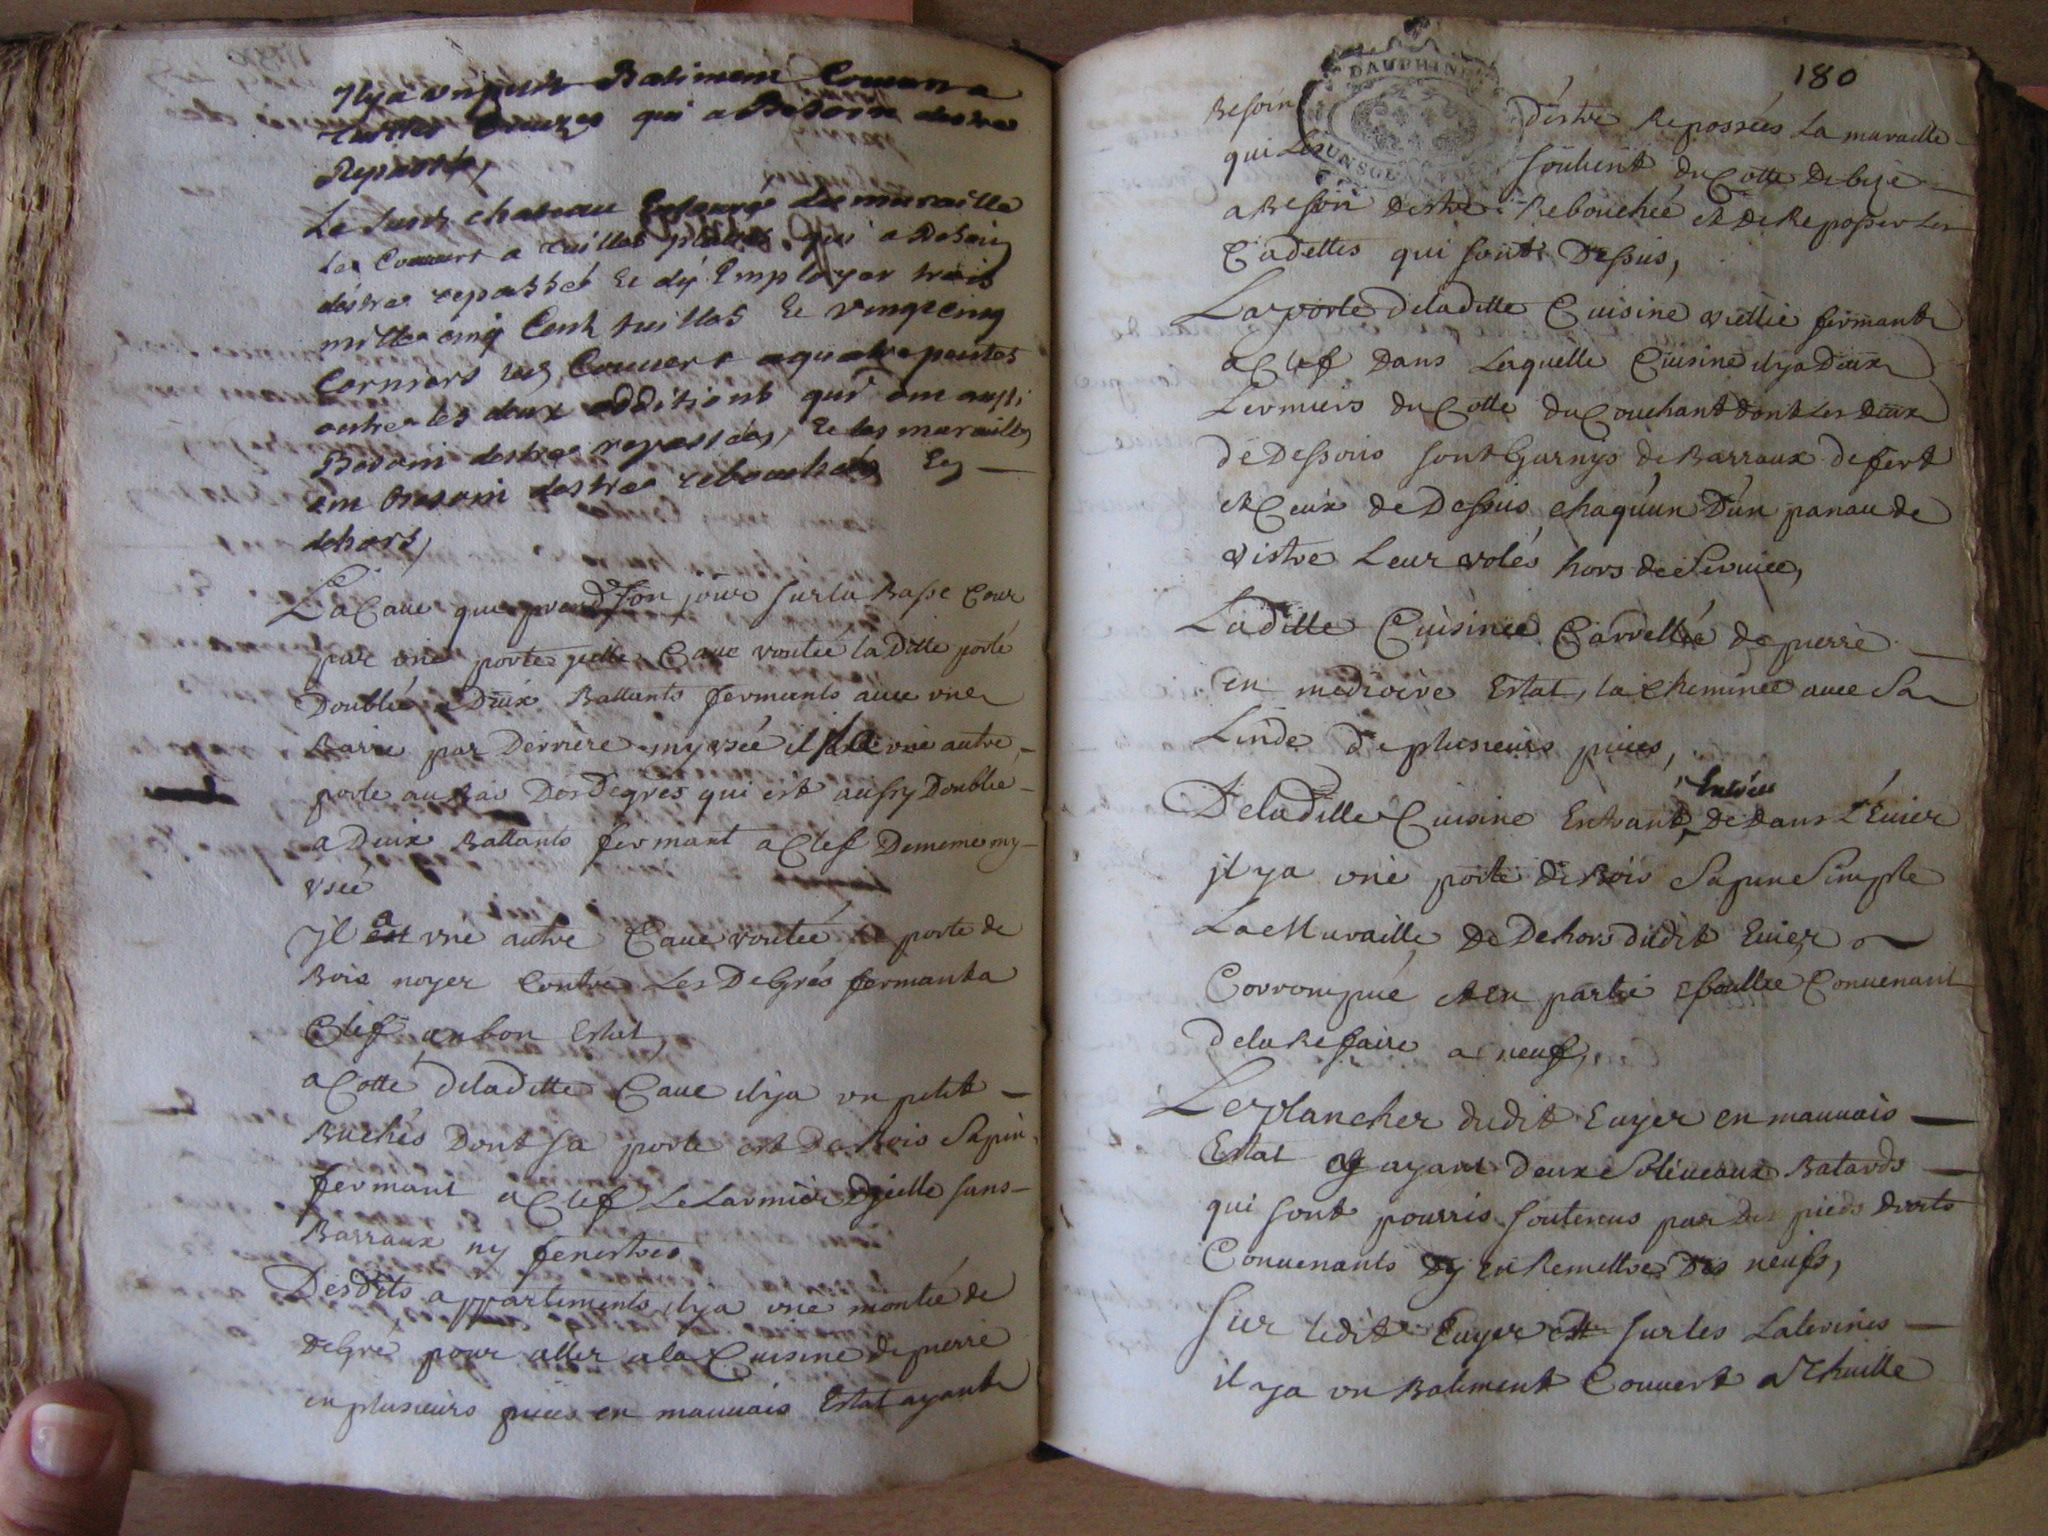 Il y a un petit Batiment Couuert a
tuilles Creuzes qui a Besoin destre
Repassé,
Le susd chateau Entouré de muraille
Les Couuert a tuilles plattes, qui a Besoin
déstre repassé Et dÿ Employer trois
mille cinq Cent tuilles Et vingtcinq
Corniers led Couuert a quatre pentes
outre les deux additions qui ont aussi
Besoin destre repassées, Et les murailles
ont besoin destre rebouchés En
dehors,
La Caue que prend son jour sur la Basse Cour
par vne porte jcelle Caue voutée la Ditte porte
Doublée a Deux Battants fermants auec vne
Barre par Derriere my vsée il y a vne autre
porte au bas Des Degres qui est aussy Double
a Deux Battants fermant a Clef De meme my
vsée
Jl a vne autre Caue voutée, porte de
Bois noyer Contre Les Degrés fermant a
Clef en bon Estat,
a Cotté de la ditte Caue il y a vn petit
Buchés Dont sa porte est De Bois Sapin
fermant a Clef Le Larmier Djcelle sans
Barraux ny fenestres
Desdits appartements, il y a vne montée de
Degré pour aller a la Cuisine de pierre
en plusieurs pieces en mauuais Estat ayant
180
DAUPHINE
Besoin déstre Repossées La muraille
qui Les soutient du Cotté De bize
a Besoin destre Rebouchée et de Reposser Les
Cadettes qui sont Dessus,
La porte de la ditte Cuisine vieille fermant
a Clef Dans Laquelle Cuisine il y a Deux
Lermiers du Cotté du Couchant dont Les deux
de Dessous sont Garnys de Barraux de fert
et Ceux de Dessus chaquun D'un panau de
vistre Leur volés hors de Seruice,
Laditte Cuisine Carrellée de pierre
en mediocre Estat, la cheminée auec Sa
Linde de plusieurs pieces,
De la ditte Cuisine Entrant Dedans L'Euier
il y a vne porte de Bois Sapin Simple
La Muraille De Dehors dudit Euier
Corrompüe et en partie eboullée Conuenant
de la Reffaire a neuf,
Le plancher dudit Euyer en mauuais
Estat ayant deux Soliueaux Batards
qui sont pourris soutenus par des pieds droits
Conuenants Dÿ en Remettre Des neufs,
Sur ledit Euyer et sur les Laterines
il y a vn Batiment Couuert a Thuille